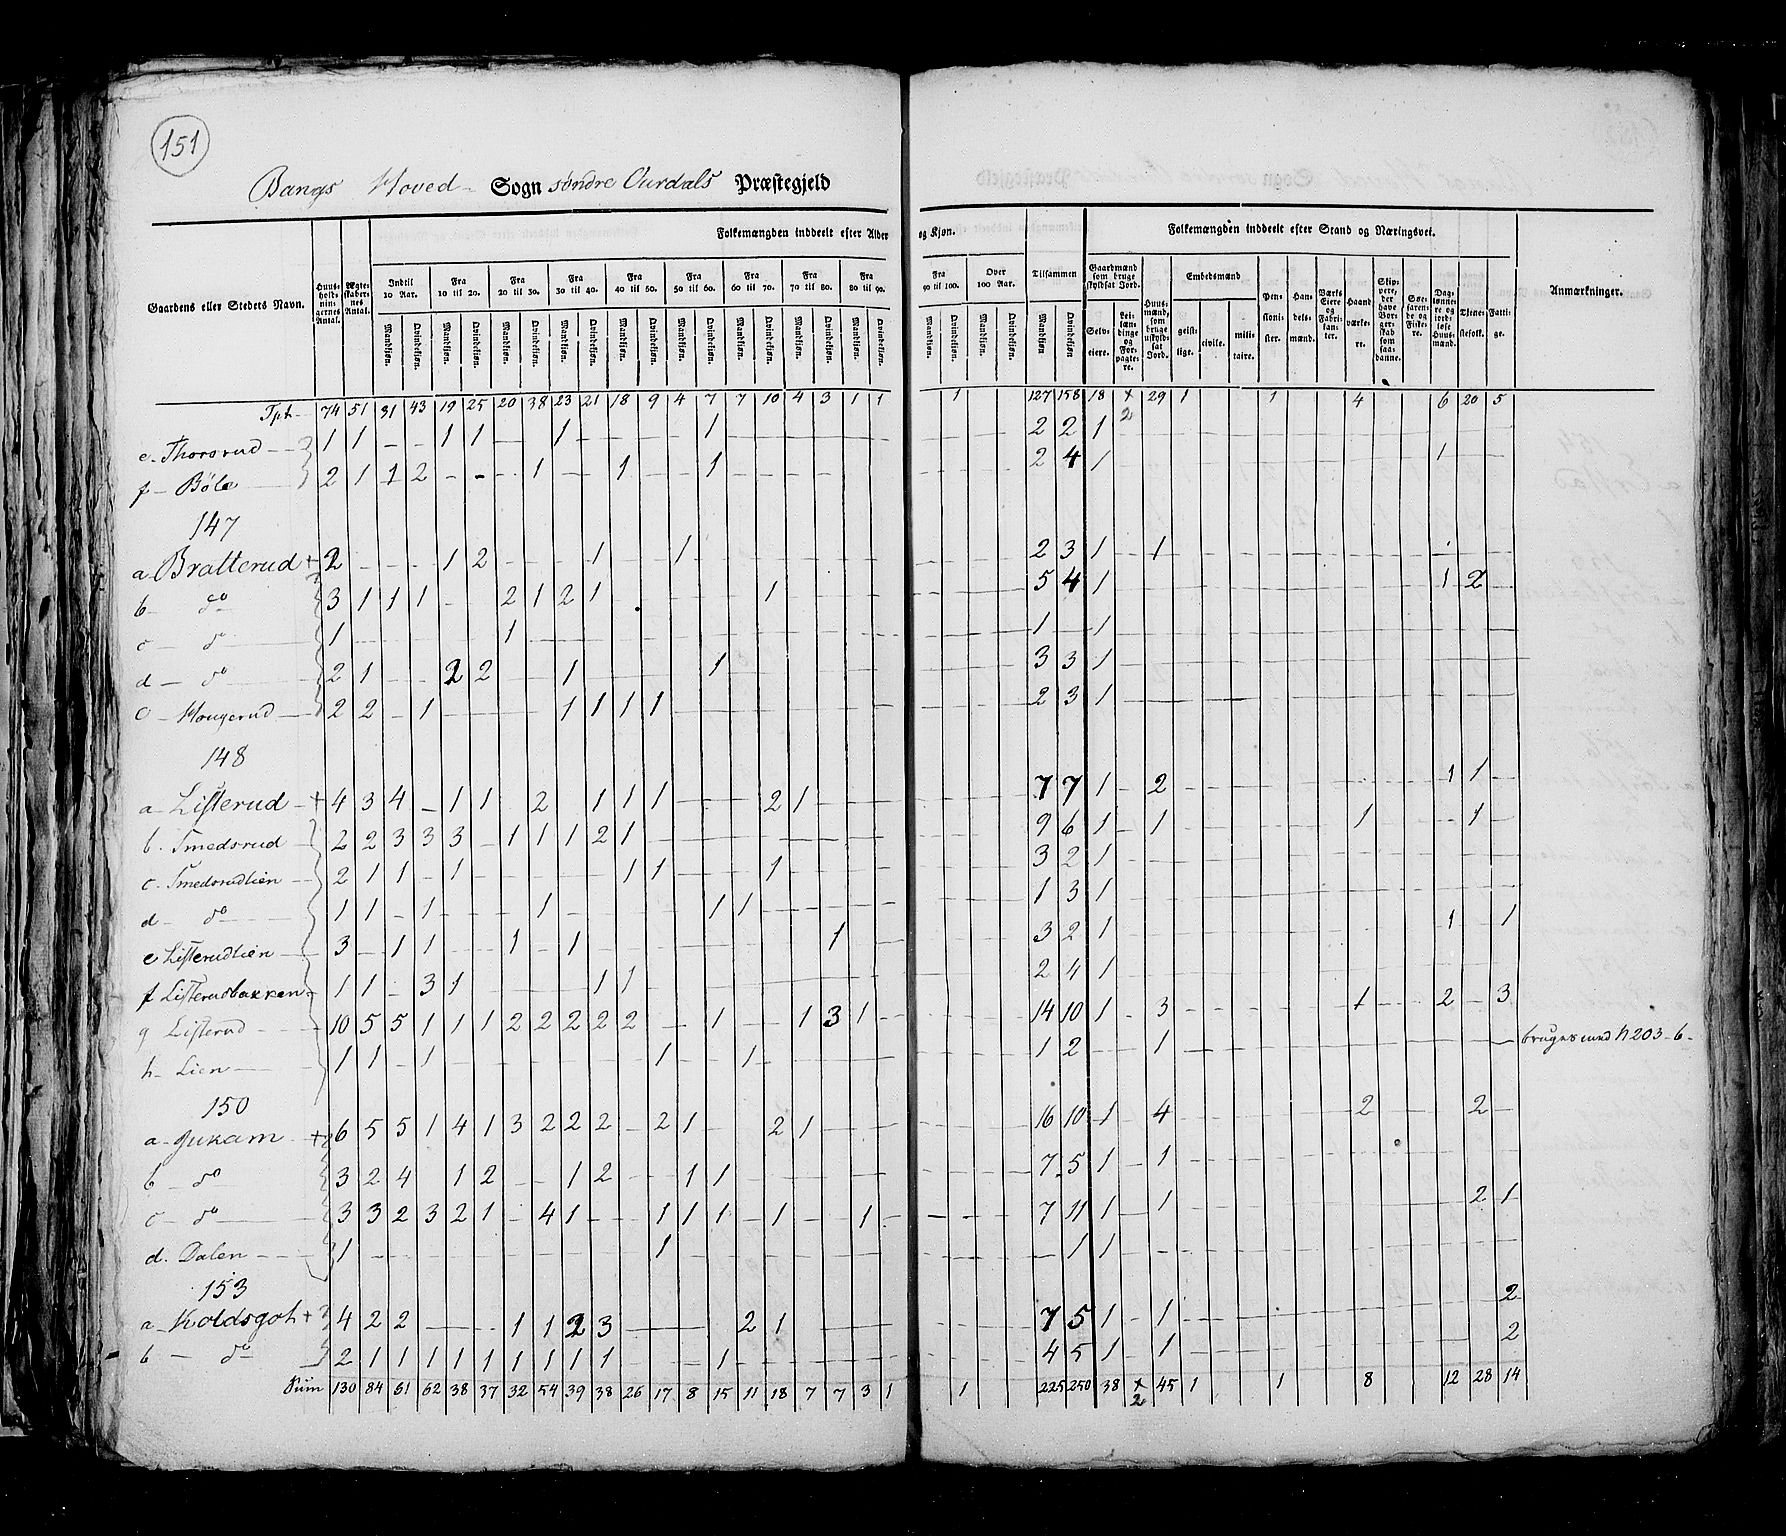 151
Bangs Hoved- Sogn søndre Ourdals Præstegjeld
Gaardens eller Stedets Navn. Huus-holdnin-gernes Antal. Ægte-skaber-nes Antal. Folkemængden inddeelt efter Alder og Kjøn. Tilsammen Folkemængden inddeelt efter Stand og Næringsvei. Anmærkninger.
Indtil 10 Aar. Fra 10 til 20. Fra 20 til 30. Fra 30 til 40. Fra 40 til 50. Fra 50 til 60. Fra 60 til 70. Fra 70 til 80. Fra 80 til 90. Fra 90 til 100. Over 100 Aar. Gaardmænd som bruge skyldsat Jord. Huus-mænd, som bruge uskyld-sat Jord. Embedsmænd Pen-sioni-ster. Han-dels-mænd. Værks Eiere og Fabri-kan-ter. Haand værke-re. Skip-pere, der have Bor-ger-skab som saa-danne. Søe-farende og Fiske-re. Dag-lønne-re og jord-løse Huus-mænd. Tjene-stefolk. Fatti-ge.
Mandkjøn. Qvindekjøn. Mandkjøn. Qvindekjøn. Mandkjøn. Qvindekjøn. Mandkjøn. Qvindekjøn. Mandkjøn. Qvindekjøn. Mandkjøn. Qvindekjøn. Mandkjøn. Qvindekjøn. Mandkjøn. Qvindekjøn. Mandkjøn. Qvindekjøn. Mandkjøn. Qvindekjøn. Mandkjøn. Qvindekjøn. Mandkjøn Qvindekjøn Selv-eiere. Lei-lændinge og For-pagte-re. geist-lige. civile. mili-taire.
Tpt- 74 51 31 43 19 25 20 38 23 21 18 9 4 7 7 10 4 3 1 1 1 127 158 18 + 2 29 1 1 4 6 20 5
e- Thorsrud 1 1 - - 1 1 - - 1 - - - - 1 - 2 2 1
f- Bøle 2 1 1 2 - - - 1 - - 1 - - 1 - 2 4 1 1
147
a- Bratterud + 2 - - - 1 2 - - - 1 - - 1 - 2 3 1 - 1
b- do 3 1 1 1 - - 2 1 2 1 - - - - - 1 - 5 4 1 1 2
c- do 1 - - - - - 1 - 1 - 1
d- do 2 1 - - 2 2 - - 1 - - - - 1 - 3 3 1
e- Hougerud 2 2 - 1 - - - - 1 1 1 1 - 2 3 1
148
a- Listerud + 4 3 4 - 1 1 - 2 - 1 1 1 - - - 2 1 - 7 7 1 - 2 1 1
b. Smedsrud 2 2 3 3 3 - 1 1 1 2 1 - 9 6 1 - 1 1 1
c. Smedsrudlien 2 1 1 - 1 - - - - - 1 1 - - - 1 - 3 2 1
d- do 1 1 - 1 - - - 1 - - - - - 1 1 - 1 3 1
e Listerudlien 3 - 1 1 - - 1 - 1 - - - - - - - - 1 - 3 2 1 1 1
f Listerudbakken 1 1 - 3 1 - - - - 1 1 - 2 4 1
g Listerud 10 5 5 1 1 1 2 2 2 2 2 - - 1 - - 1 3 1 - 14 10 1 - 3 1 2 - 3
h- Lien 1 1 - 1 - - - - - - - 1 - - 1 - 1 2 - - 1 bruges med N 203-b-
150
a- Jukam + 6 5 5 1 4 1 3 2 2 2 - 2 1 - - 2 1 - 16 10 1 - 4 2 2 -
b do 3 2 4 - 1 2 - - 1 2 - - 1 1 - 7 5 1 - 1
c- do 3 3 2 3 2 1 - 4 1 - - 1 1 1 - 1 - - 1 - 7 11 1 - 1 2 1
d. Dalen 1 - - - - - - - - - - 1 - 1 1
153
a- Koldsgoh + 4 2 2 - - - 1 1 2 3 - - - - 2 1 - 7 5 1 - 1 2
b- do 2 1 1 1 1 1 1 1 1 1 - - - 1 - 4 5 1 - 1 2
Sum 130 84 61 62 38 37 32 54 39 38 26 17 8 15 11 18 7 7 3 1 1 225 250 38 + 2 45 1 1 8 12 28 14